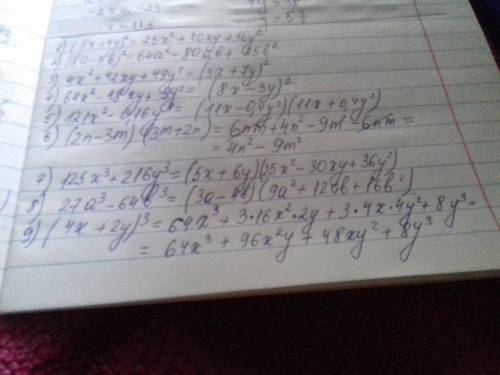 1) (5x+4y)² = 25x² + 40xy + 16y²
2) (8a-5b)² = 64a² - 80ab + 25b²
3) 9x² + 42xy + 49y² = (3x + 7y)²
4) 64x² - 48xy + 9y² = (8x - 3y)²
5) 121x² - 0,16y² = (11x - 0,4y²)(11x + 0,4y²)
6) (2n-3m)(3m+2n) = 6nm + 4n² - 9m² - 6nm =
= 4n² - 9m²
7) 125x³ + 216y³ = (5x + 6y)(25x² - 30xy + 36y²)
8) 27a³ - 64b³ = (3a - 4b)(9a² + 12ab + 16b²)
9) (4x + 2y)³ = 64x³ + 3·16x²·2y + 3·4x·4y² + 8y³ =
= 64x³ + 96x²y + 48xy² + 8y³